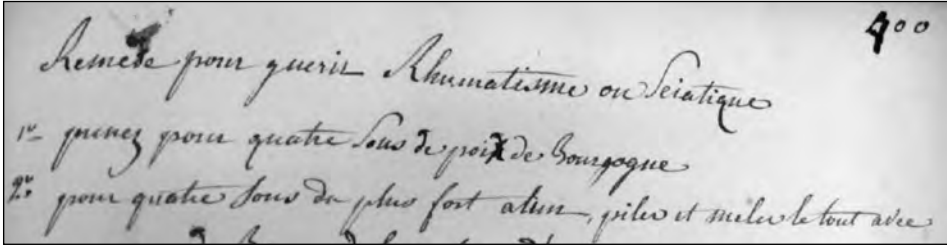 400
Remede pour guerir Rhumatisme ou Sciatique
1o prenez pour quatre Sous de poix de Bourgogne
2o pour quatre Sous du plus fort alun, piler et meler le tout avec